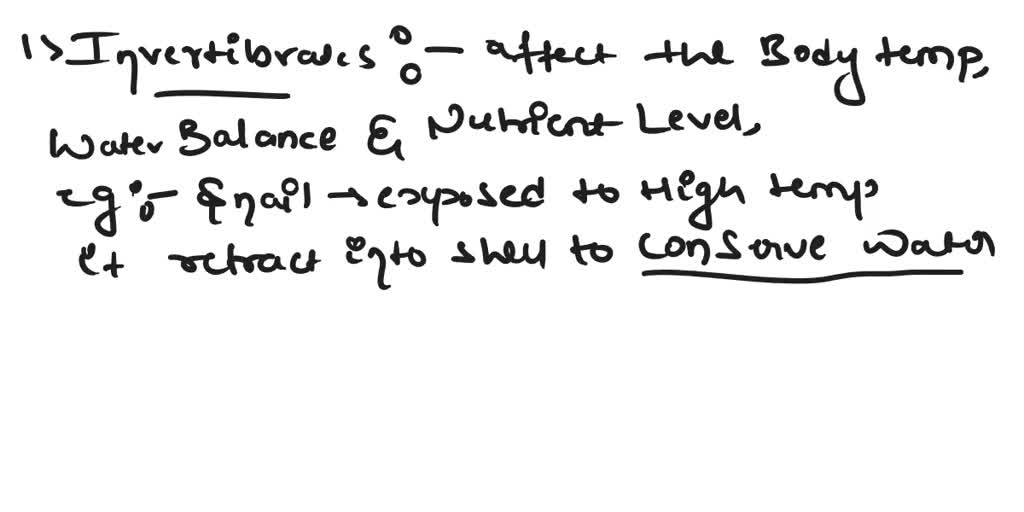 1> Invertibrates :- affect the Body temp,
Water Balance & Nutrient Level,
eg :- Snail → exposed to High temp
it retract into shell to conserve water